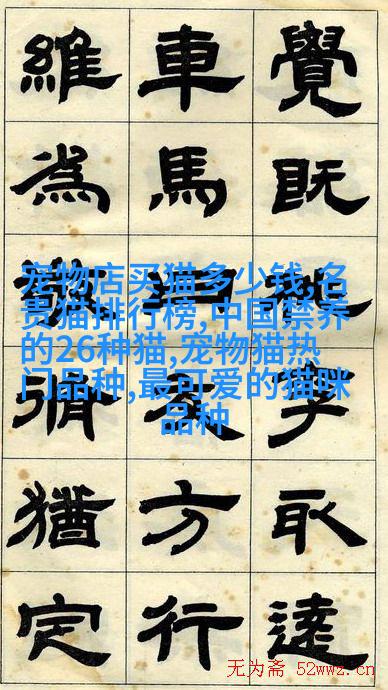 覺既取達
車馬方行
維為脩猶定
宠物店买猫多少钱,名
贵猫排行榜,中国禁养
的26种猫,宠物猫热
门品种,最可爱的猫咪
品种
无为斋 52wwz.cn